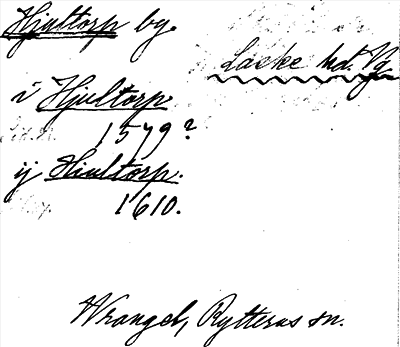 Hjultorp by.
Laske hd. Vg.
i Hjultorp
1579?
ij Hiultorp.
1610.
Wrangel, Rytterus sn.